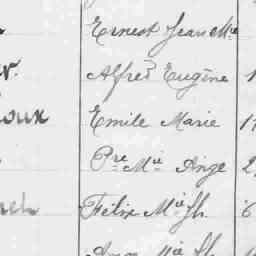 Ernest Jean Mie
Alfred Eugène 1
oux Emile Marie 1
Pre Mie Ange 2
Félix Mie Jh 6
Mie Jh